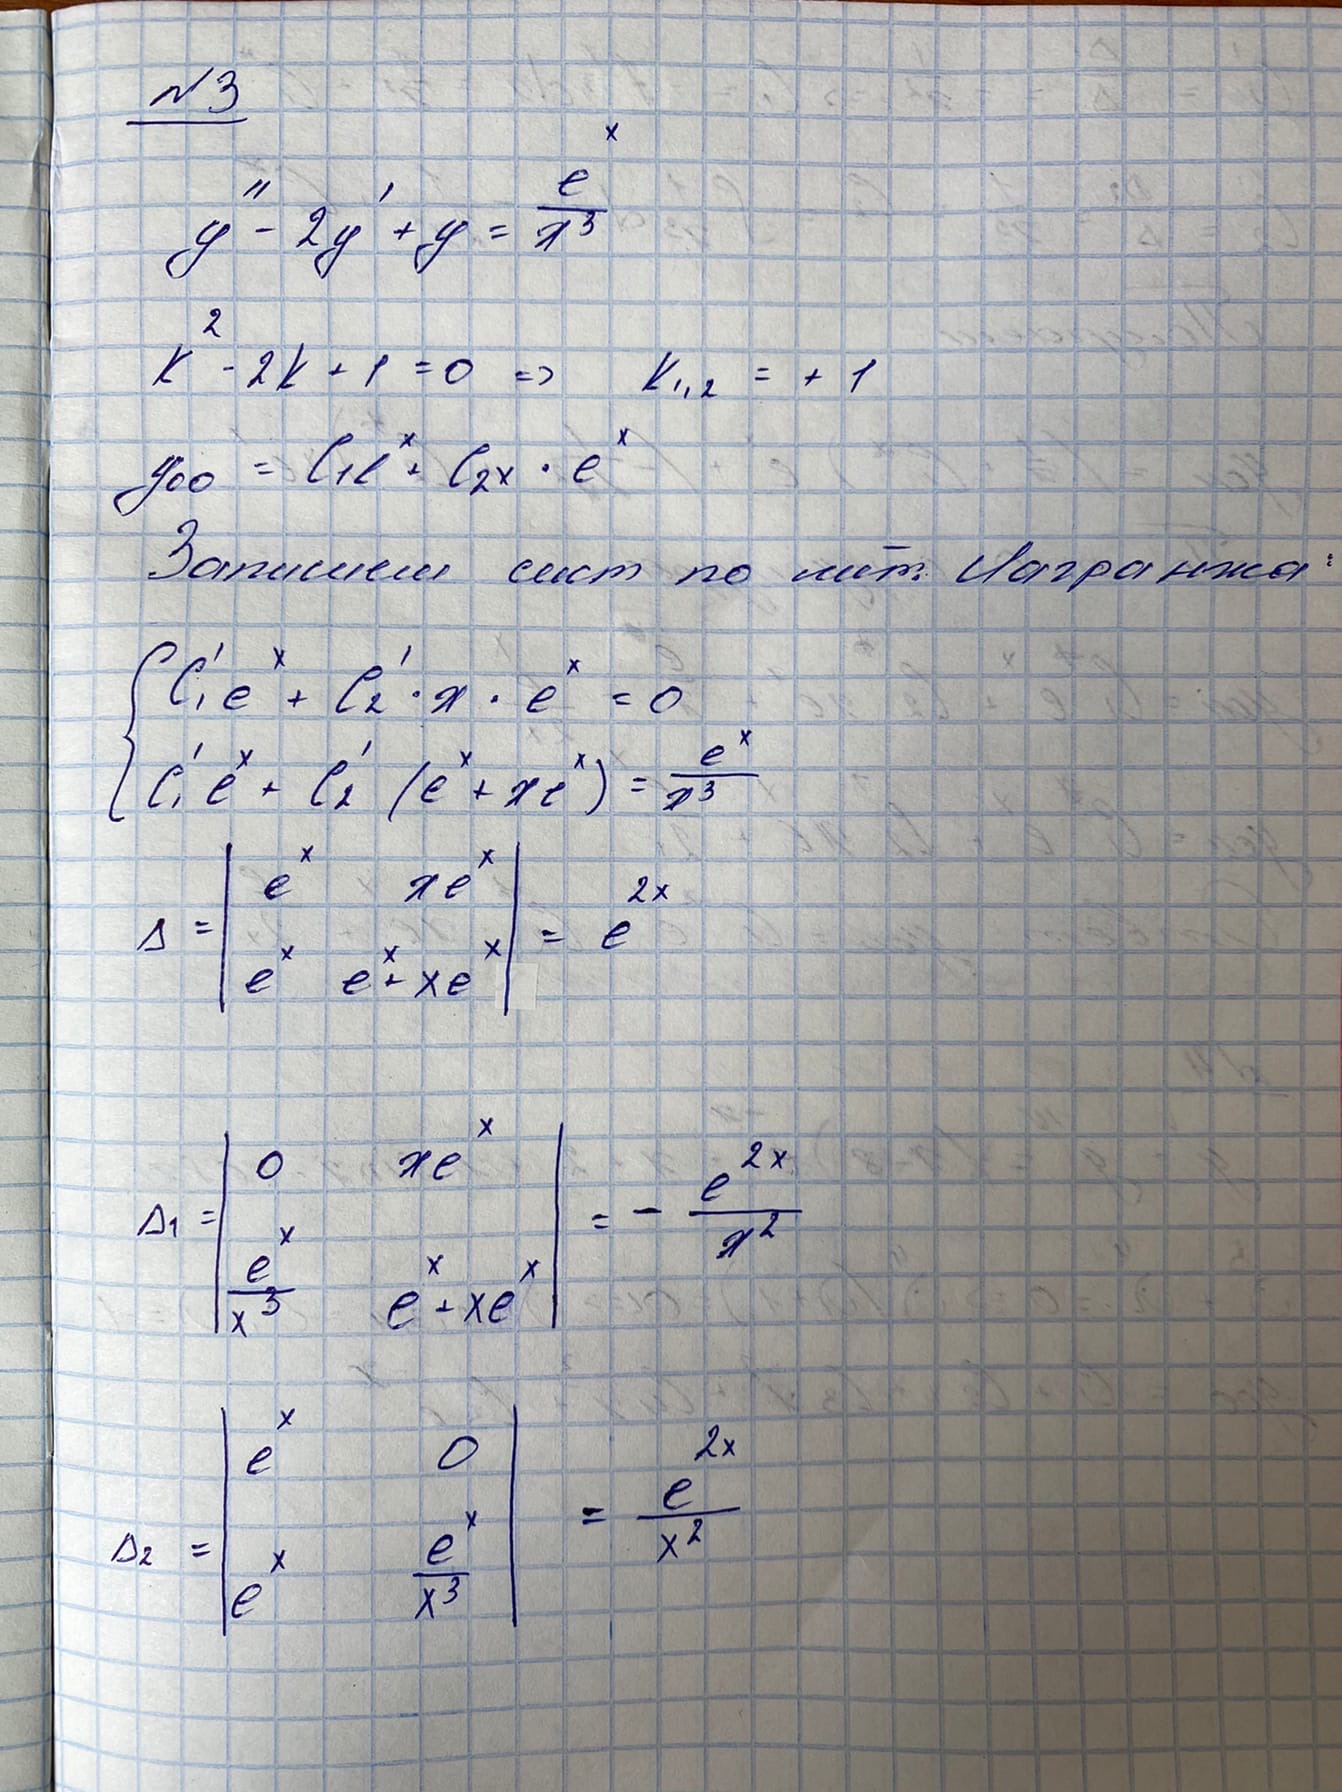 №3
y'' - 2y' + y = e^x / x^3
k^2 - 2k + 1 = 0 => k1,2 = + 1
yoo = C1e^x + C2x · e^x
Запишем сист по мет. Лагранжа:
{ C1' e^x + C2' · x · e^x = 0
C1' e^x + C2' (e^x + xe^x) = e^x / x^3
Δ = | e^x xe^x |
| e^x e^x + xe^x | = e^2x
Δ1 = | 0 xe^x |
| e^x / x^3 e^x + xe^x | = - e^2x / x^2
Δ2 = | e^x 0 |
| e^x e^x / x^3 | = e^2x / x^2